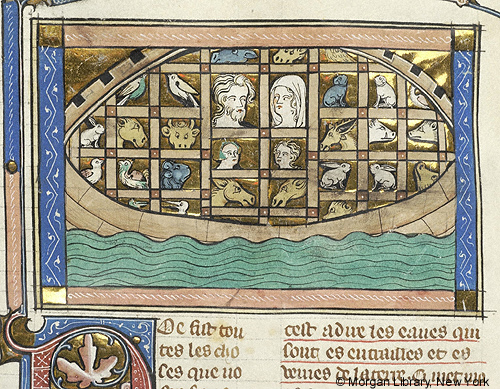 oe fist tou
tes les cho
ses que uo
cest adire les eaues qui
sont es entrailles et es
veines de laterre.
© Morgan Library, New York